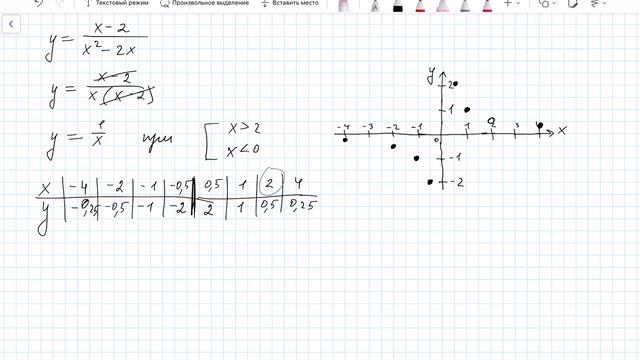 Текстовый режим Произвольное выделение Вставить место
y = x-2 / x² - 2x
y = x-2 / x (x-2)
y = 1/x при [ x > 2
x < 0
x | -4 | -2 | -1 | -0,5 | 0,5 | 1 | 2 | 4
y | -0,25 | -0,5 | -1 | -2 | 2 | 1 | 0,5 | 0,25
y
2
1
-4 -3 -2 -1 0 1 2 3 4 x
-1
-2